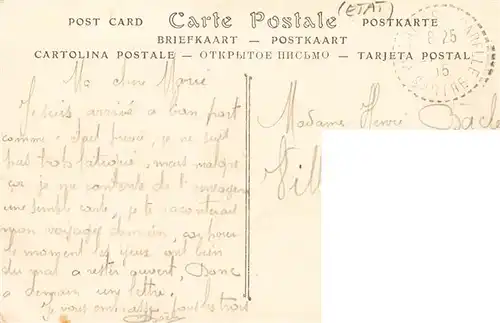 (ETAT)
POST CARD Carte Postale POSTKARTE
BRIEFKAART — POSTKAART
CARTOLINA POSTALE — ОТКРЫТОЕ ПИСЬМО — TARJETA POSTAL
8-25
15
SARTHE
Ma chère Marie
Je suis arrivé a bon port
comme était prévu, je ne suis
pas trop fatigué, mais malgré
ça je me contente de t'envoyer
une simple carte, je te raconterai
mon voyage demain, car pour
le moment les yeux ont bien
du mal a rester ouvert, Donc
a demain une lettre.
Je vous embrasse tous les trois
Madame Henri Bacle
Vill